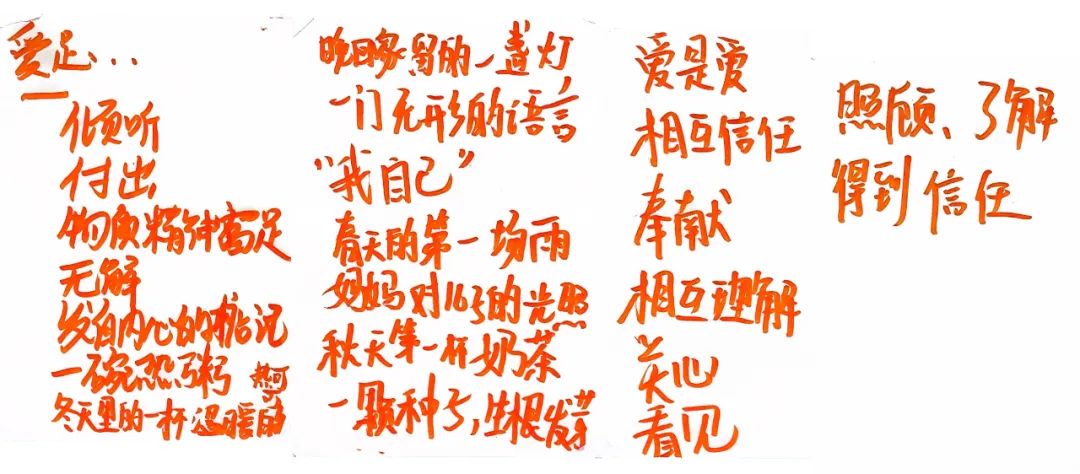 爱是...
倾听
付出
物质精神富足
无解
发自内心的惦记
一碗热粥
冬天里的一杯温暖的
热可
留的一盏灯
一门无形的语言
“我自己”
春天的第一场雨
妈妈对孩子的光照
秋天第一杯奶茶
一颗种子,生根发芽
爱是爱
相互信任
奉献
相互理解
关心
看见
照顾、了解
得到信任